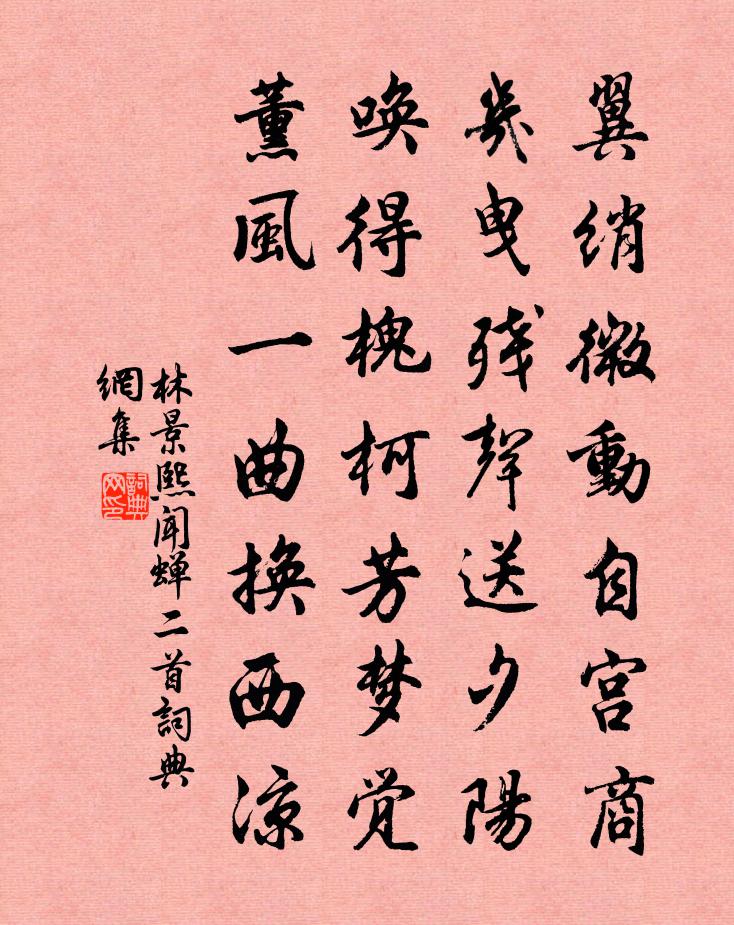 翼绡微動自宫商
幾曳残聲送夕陽
唤得槐柯芳梦觉
薰風一曲换西凉
林景熙闻蝉二首詞典
網集
詞典
网印